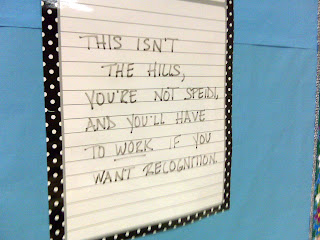 THIS ISN'T
THE HILLS,
YOU'RE NOT SPEIDI,
AND YOU'LL HAVE
TO WORK IF YOU
WANT RECOGNITION.